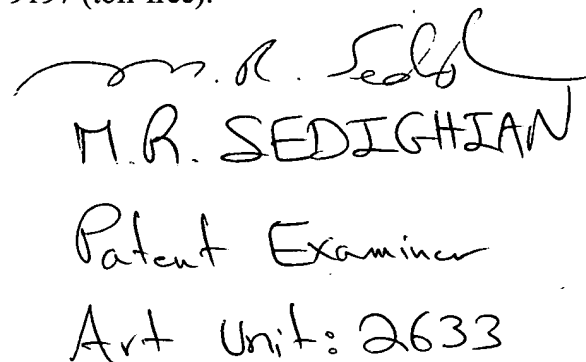 9197 (toll-free).
M. R. Sedigh
M.R. SEDIGHIAN
Patent Examiner
Art Unit: 2633